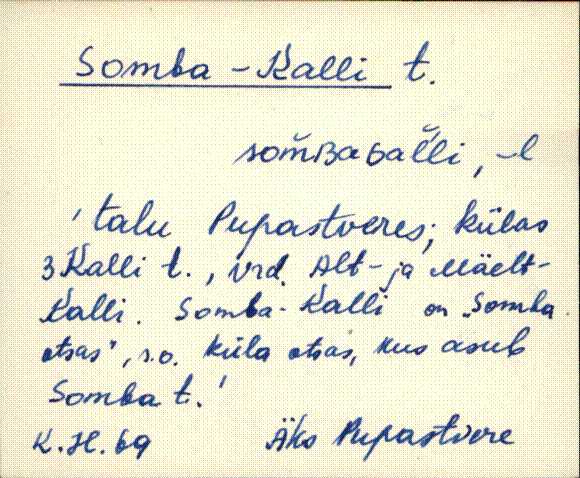 Somba-Kalli t.
som̆ʙaɢal̆li, -l
'talu Pupastveres; külas
3 Kalli t., vrd. Alt- ja Mäelt-
Kalli. Somba-Kalli on „Somba
otsas", s.o. küla otsas, kus asub
Somba t.'
K.H. 69 Äks Pupastvere